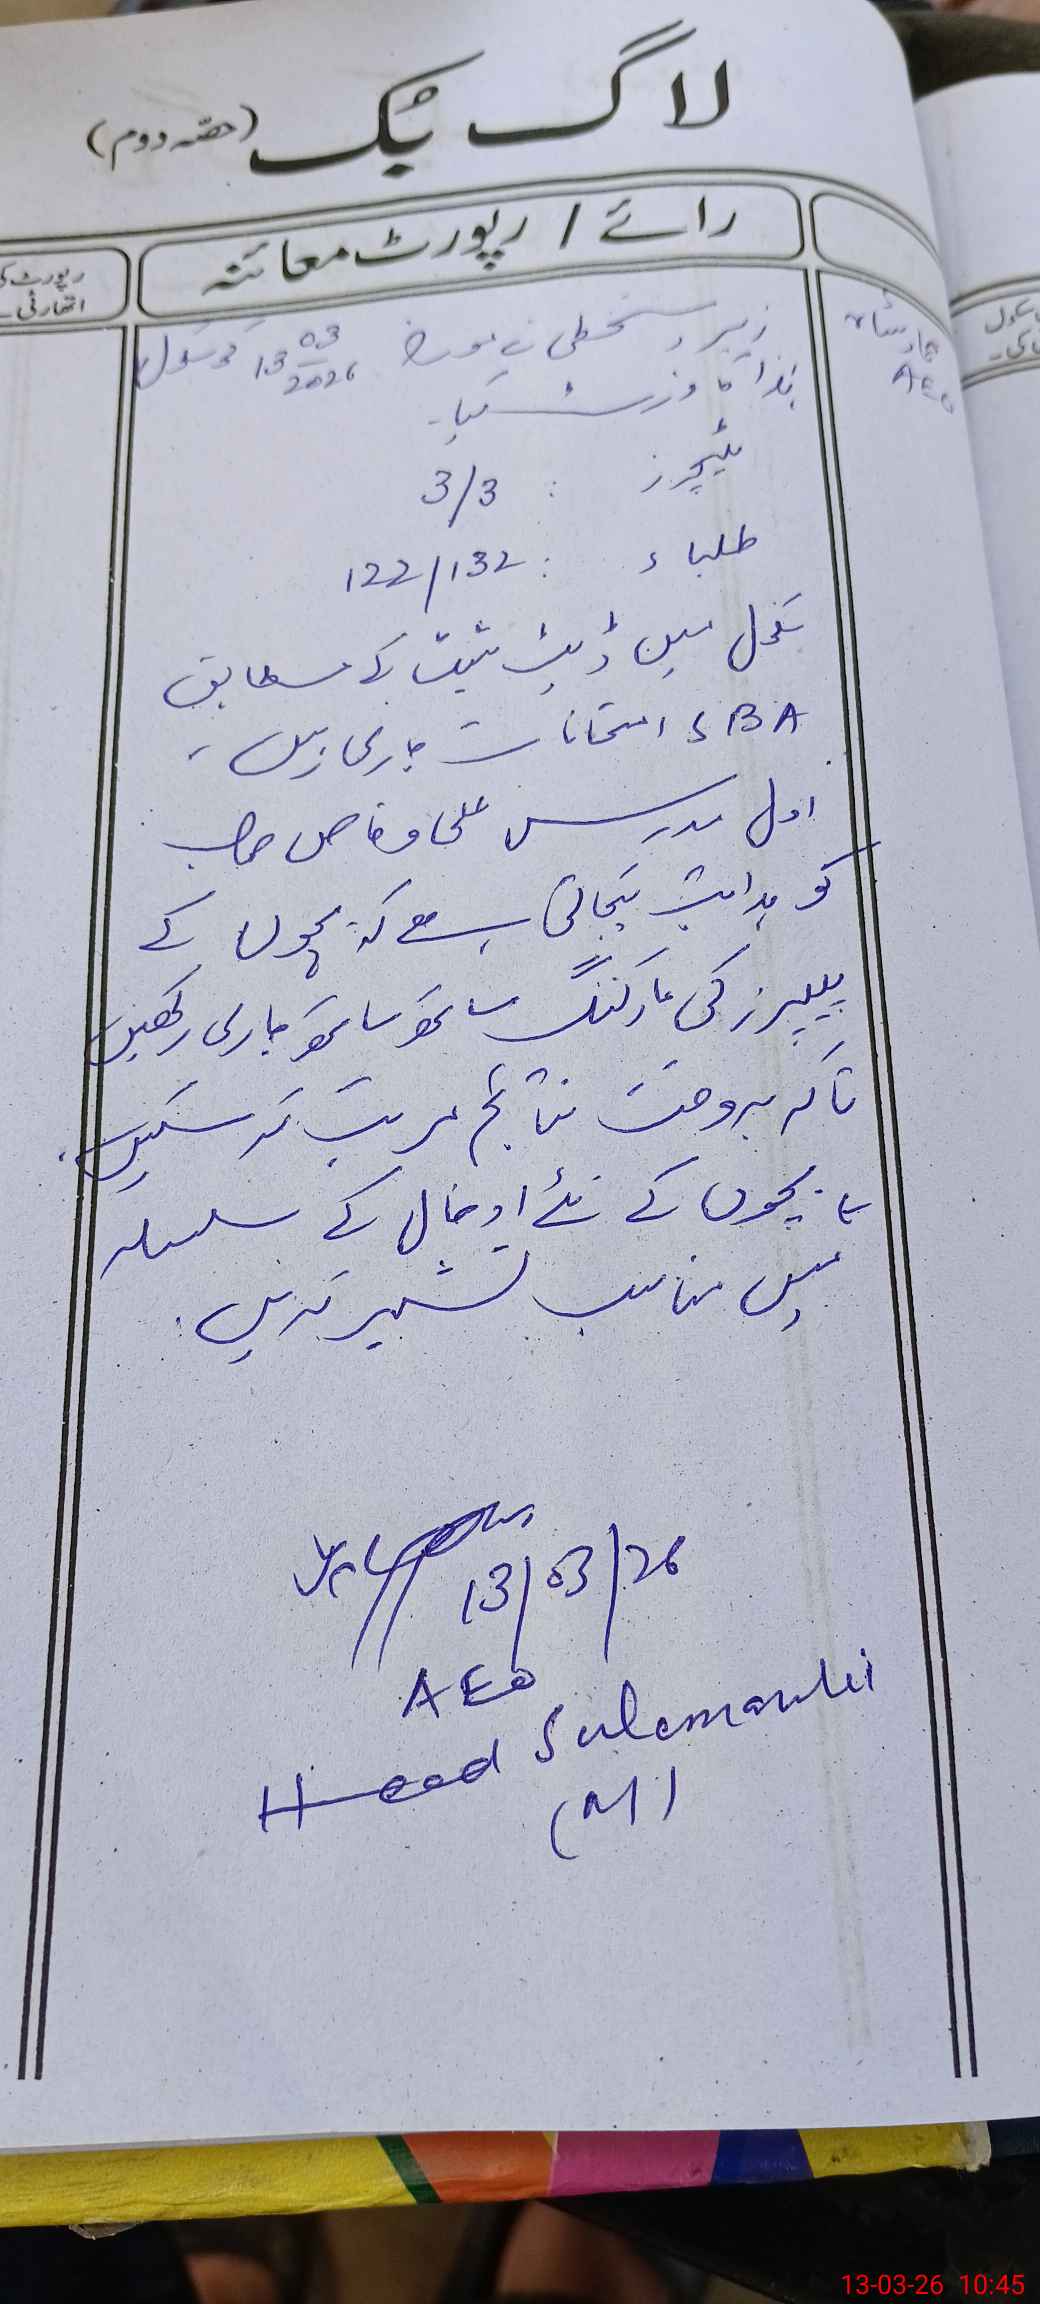 لاگ بُک (حصہ دوم)
رائے / رپورٹ معائنہ
رپورٹ
اتھارٹی
سکول
AEO
زیر دستخطی نے مورخہ 13-03-2026 کو سکول
ہذا کا وزٹ کیا۔
ٹیچرز : 3/3
طلباء : 122/132
سکول میں ڈیٹ شیٹ کے مطابق
SBA امتحانات جاری ہیں۔
اول مدرس علی وقاص صاحب
کو ہدایت کی جاتی ہے کہ بچوں کے
پیپرز کی مارکنگ ساتھ ساتھ جاری رکھیں
تاکہ بروقت نتائج مرتب کر سکیں۔
بچوں کے نئے داخل کے سلسلہ
میں مناسب تشہیر کریں۔
13/03/26
AEO
Head Sulemanki
(M)
13-03-26 10:45